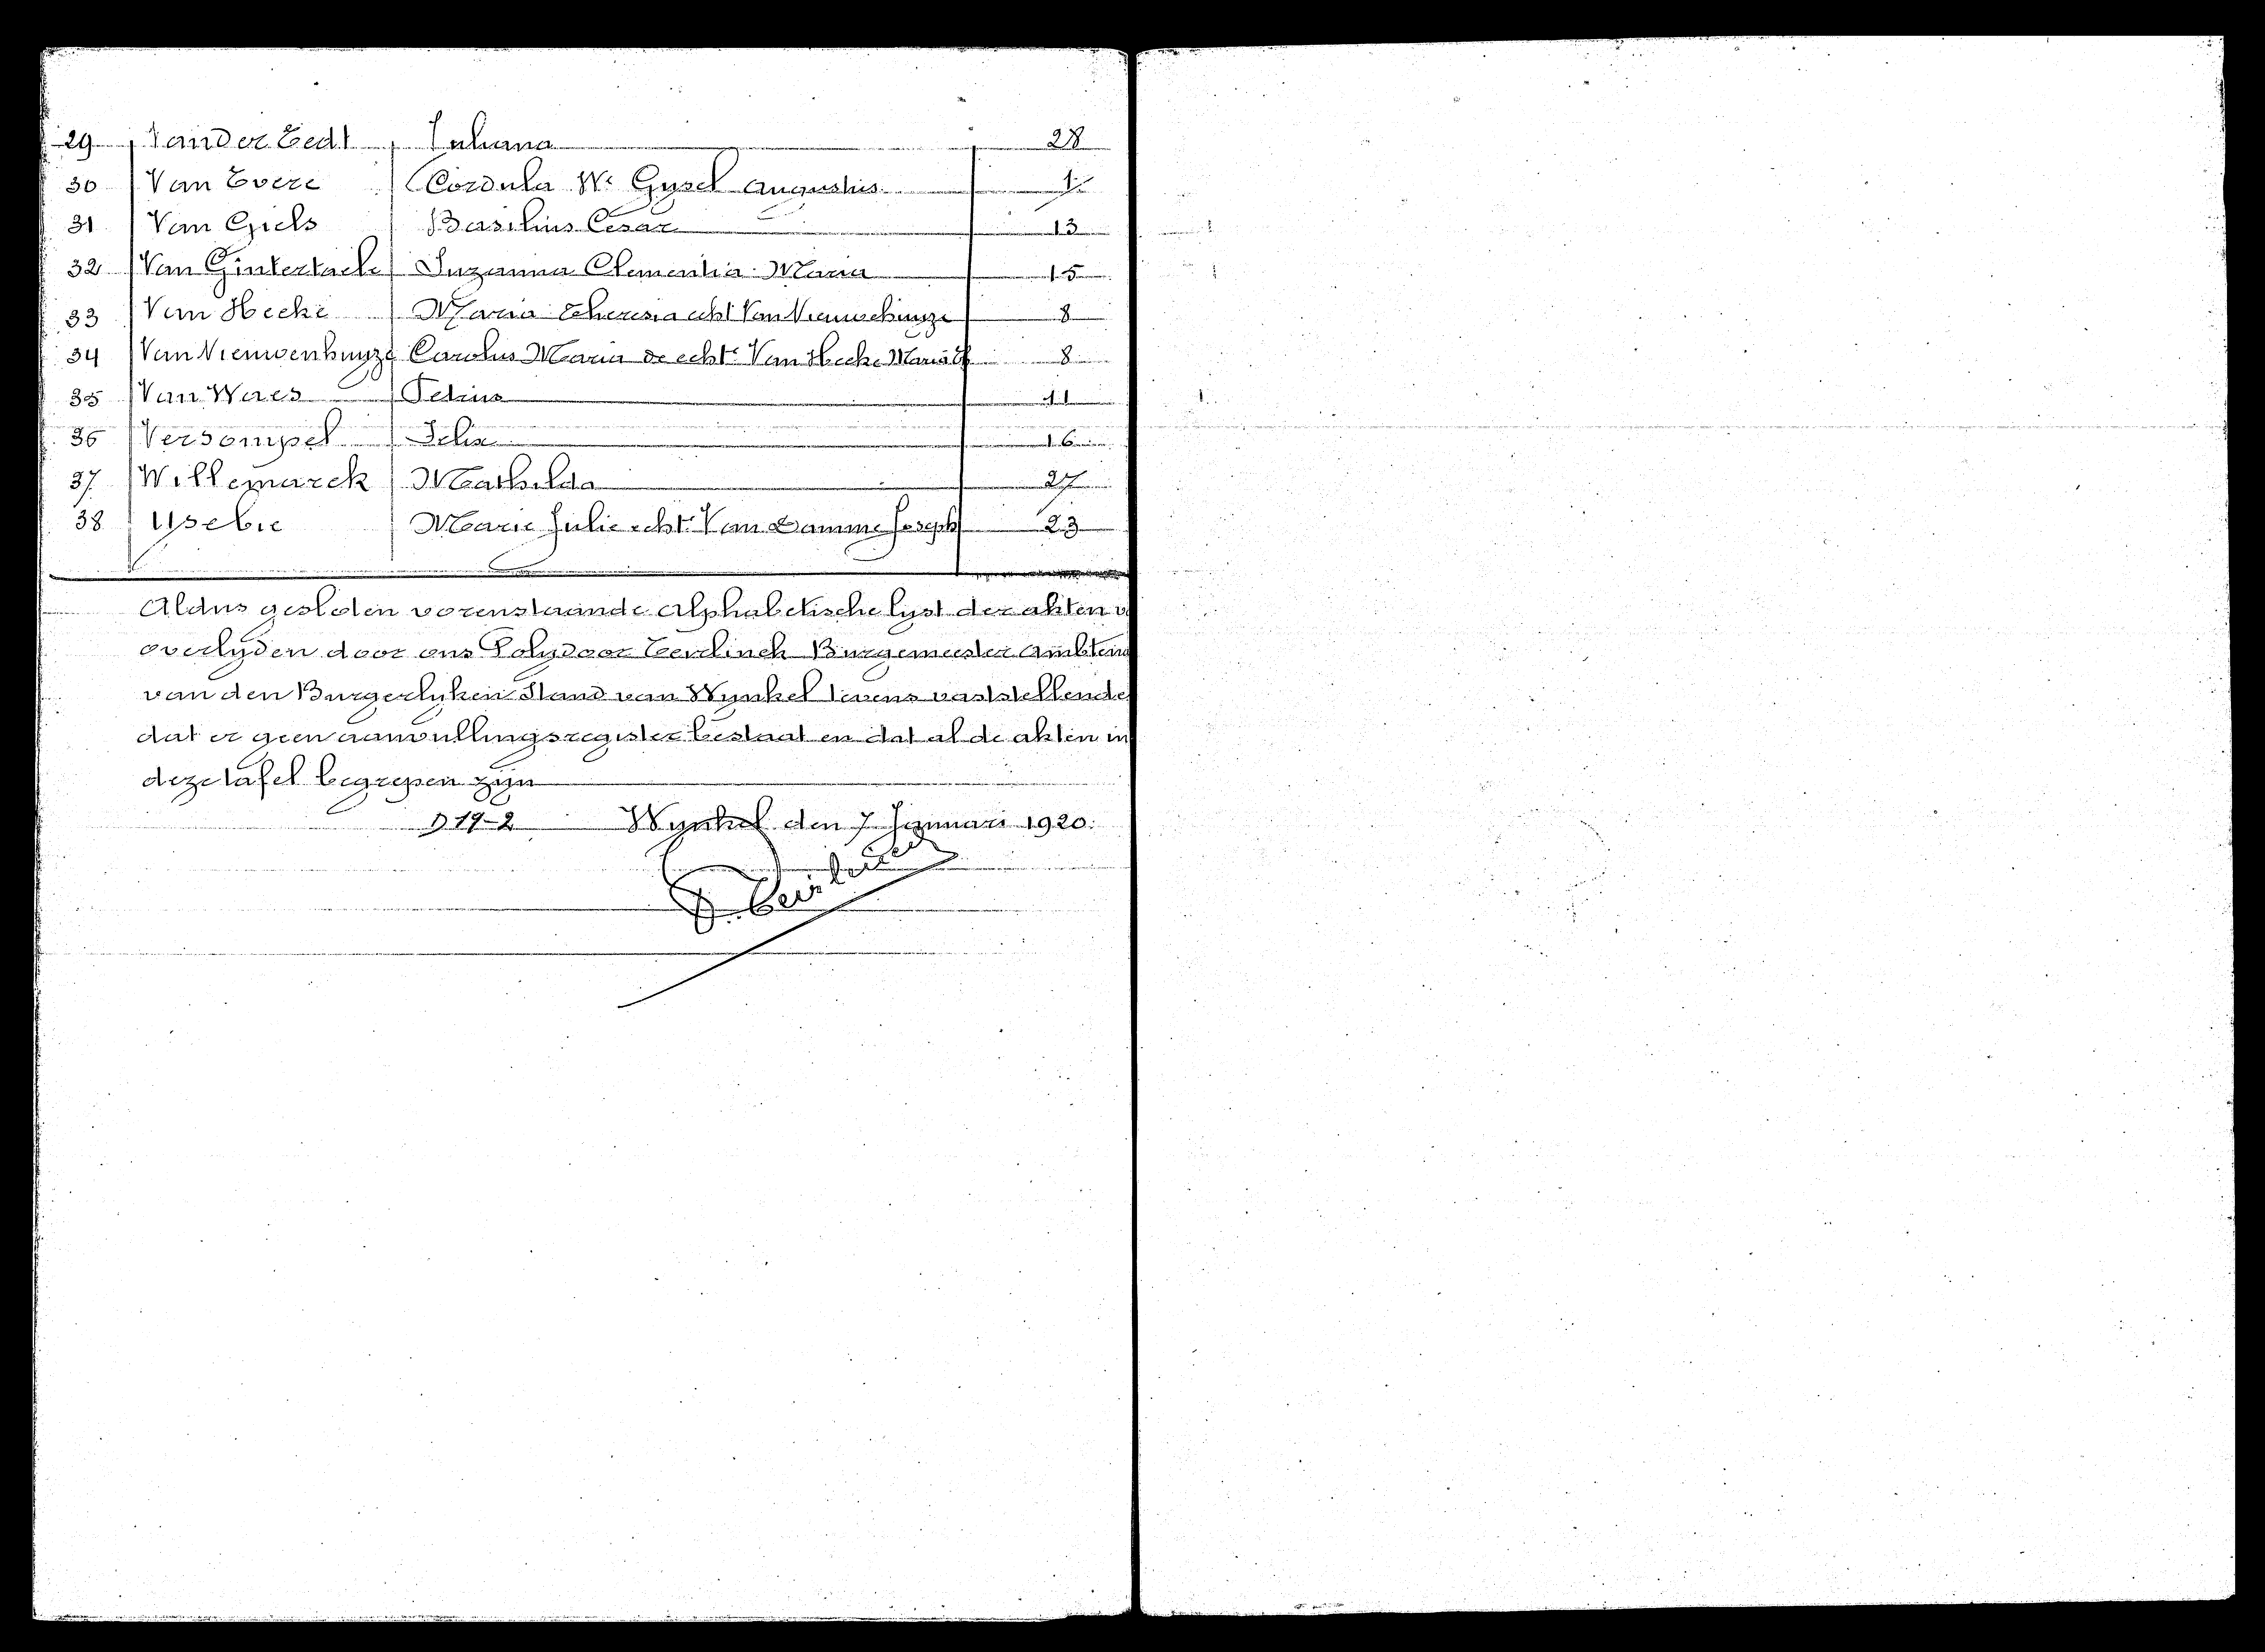 29 Vander Eedt Juliana 28
30 Van Evere Cordula We Gysel Augustus 1
31 Van Giels Basilius Cesar 13
32 Van Ginkertaele Suzanna Clementia Maria 15
33 Van Hecke Maria Theresia echt Van Nieuwehuyze 8
34 Van Nieuwenhuyze Carolus Maria de echte Van Hecke Maria Th 8
35 Van Waes Petrus 11
36 Versompel Felix 16
37 Willemarck Mathilda 27
38 Ysebie Marie Julie echte Van Damme Joseph 23
Aldus gesloten vorenstaande Alphabetische lyst der akten v
overlyden door ons Polydoor Teirlinck Burgemeester Ambten
van den Burgerlyken Stand van Wynkel tevens vaststellende
dat er geen aanvullingsregister bestaat en dat al de akten in
deze tafel begrepen zyn
D 19-2 Wynkel den 7 Januari 1920.
P. Teirlinck